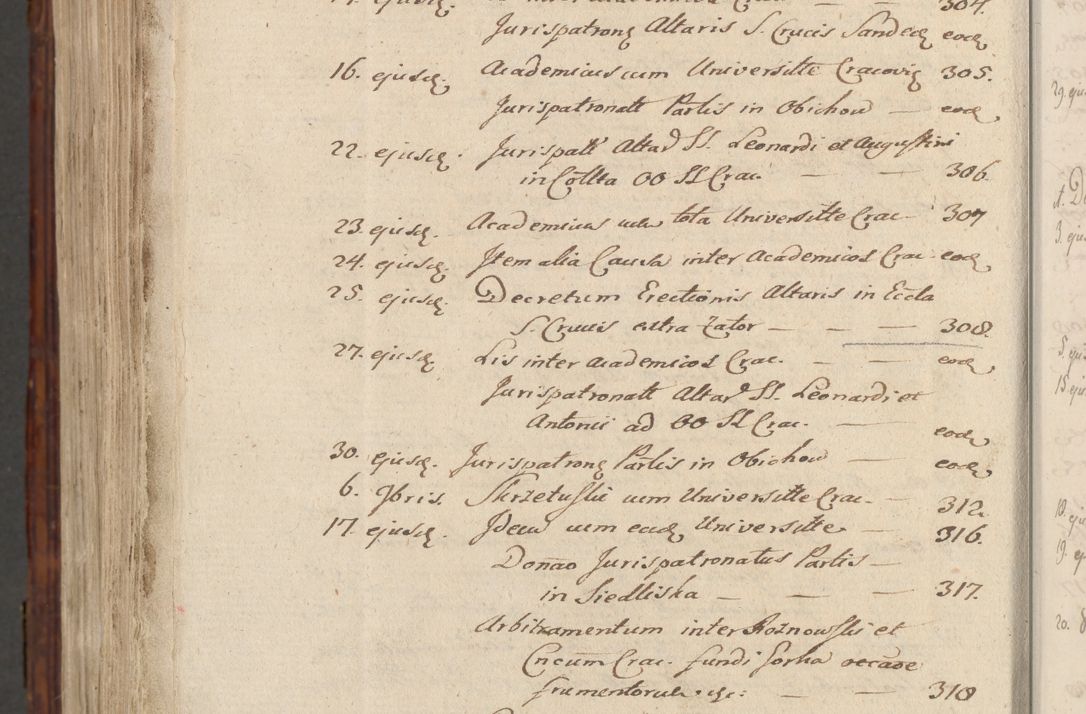 304.
Jurispatronꝫ Altaris S. Crucis Sandecꝫ eodꝫ
16. ejusdꝫ. Academicus cum Universitte Cracoviꝫ 305.
Jurispatronatt Partis in Obichow — eodꝫ
22. ejusdꝫ. Jurispatt Altar SS. Leonardi et Augustini
in Collta OO SS Crac. — — 306.
23. ejusdꝫ. Academicus cum tota Universitte Crac 307
24. ejusdꝫ. Item alia Causa inter Academicos Crac. eodꝫ
25. ejusdꝫ. Decretum Erectionis Altaris in Eccla
S. Crucis extra Zator — — — 308.
27. ejusdꝫ. Lis inter Academicos Crac. — — eodꝫ
Jurispatronatt Altar SS. Leonardi et
Antonii ad OO SS Crac. — eodꝫ
30. ejusdꝫ. Jurispatronꝫ Partis in Obichow — eodꝫ
6. 9bris. Skrzetuski cum Universitte Crac. — 312.
17. ejusdꝫ. Idem cum eadꝫ Universitte — 316.
Donãо Jurispatronatus Partis —
in Siedliska — — — 317.
Arbitramentum inter Rożnowski et
Cncum Crac. fundi Sorka
frumentorum — — 318